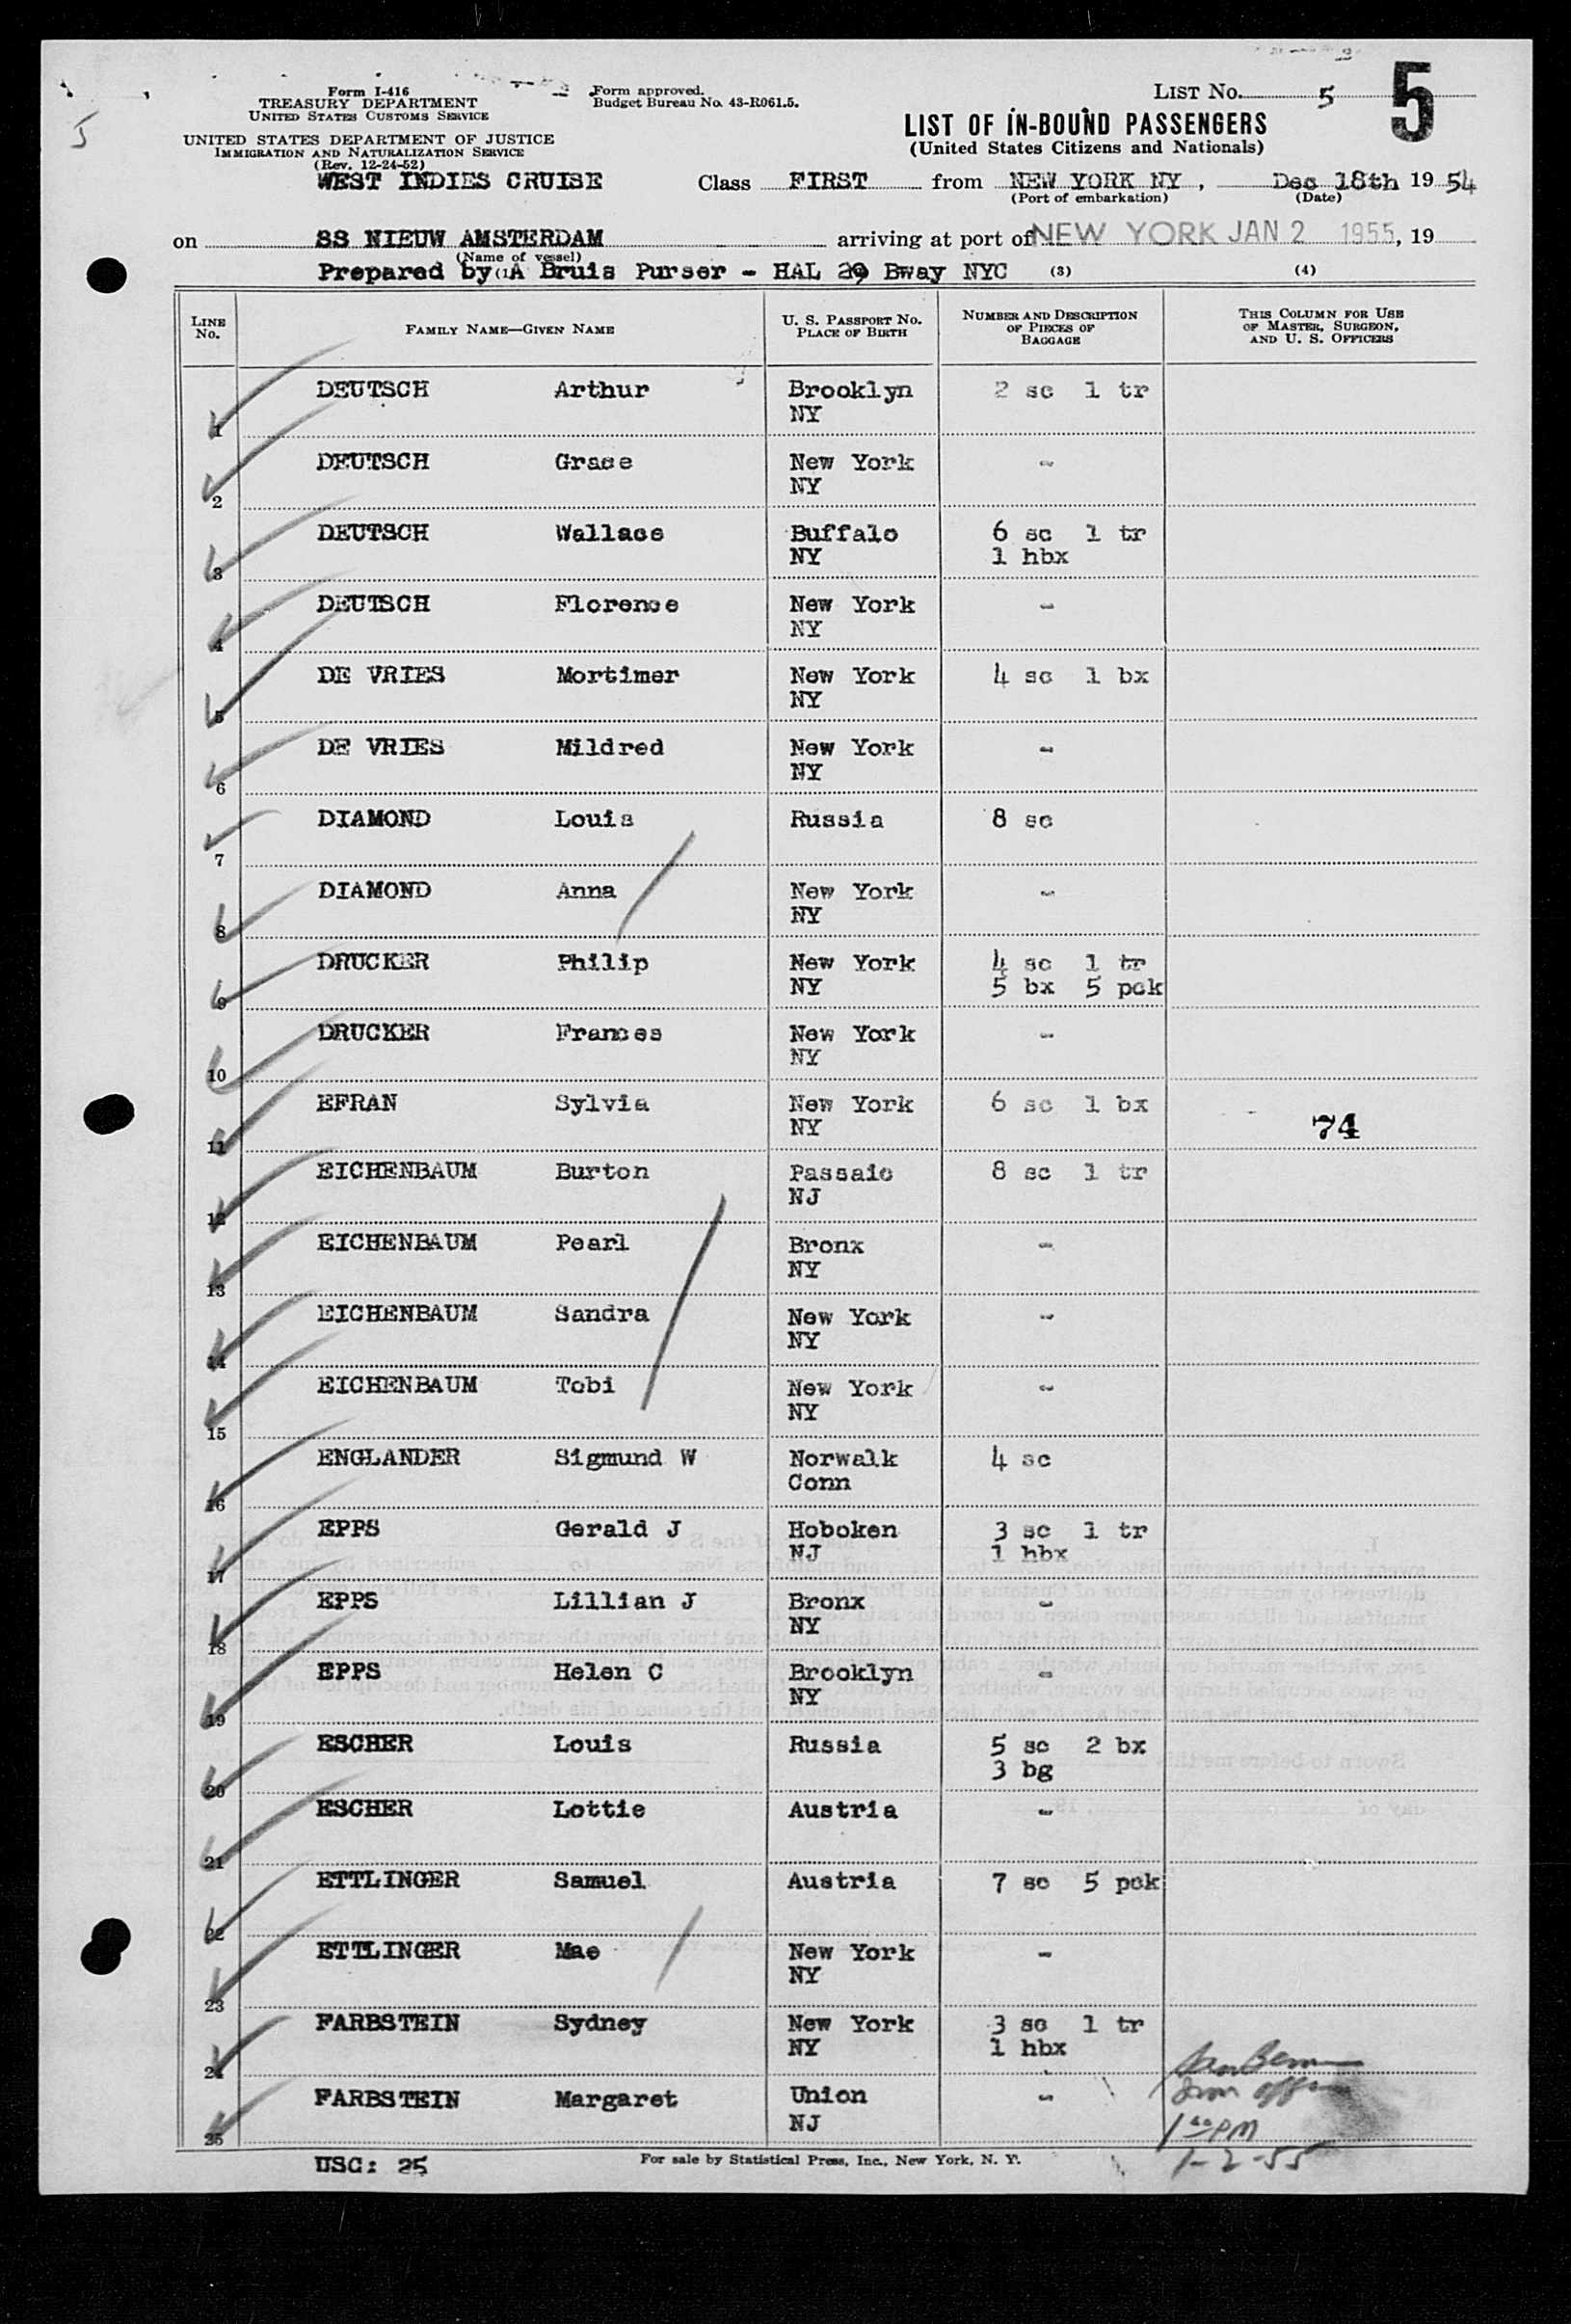 Form I-416
TREASURY DEPARTMENT
UNITED STATES CUSTOMS SERVICE
UNITED STATES DEPARTMENT OF JUSTICE
IMMIGRATION AND NATURALIZATION SERVICE
(Rev. 12-24-52)
Form approved.
Budget Bureau No. 43-R061.5.
LIST No. 5
5
5
LIST OF IN-BOUND PASSENGERS
(United States Citizens and Nationals)
WEST INDIES CRUISE Class FIRST from NEW YORK NY , Dec 18th 19 54
(Port of embarkation) (Date)
on SS NIEUW AMSTERDAM arriving at port of NEW YORK JAN 2 1955, 19
(Name of vessel)
Prepared by (1) A Bruis Purser - HAL 29 Bway NYC (3) (4)
LINE No. FAMILY NAME—GIVEN NAME U. S. PASSPORT No. PLACE OF BIRTH NUMBER AND DESCRIPTION OF PIECES OF BAGGAGE THIS COLUMN FOR USE OF MASTER, SURGEON, AND U. S. OFFICERS
1 DEUTSCH Arthur Brooklyn 2 sc 1 tr
NY
2 DEUTSCH Grace New York -
NY
3 DEUTSCH Wallace Buffalo 6 sc 1 tr
NY 1 hbx
4 DEUTSCH Florence New York -
NY
5 DE VRIES Mortimer New York 4 sc 1 bx
NY
6 DE VRIES Mildred New York -
NY
7 DIAMOND Louis Russia 8 sc
8 DIAMOND Anna New York -
NY
9 DRUCKER Philip New York 4 sc 1 tr
NY 5 bx 5 pck
10 DRUCKER Frances New York -
NY
11 EFRAN Sylvia New York 6 sc 1 bx
NY 74
12 EICHENBAUM Burton Passaic 8 sc 1 tr
NJ
13 EICHENBAUM Pearl Bronx -
NY
14 EICHENBAUM Sandra New York -
NY
15 EICHENBAUM Tobi New York -
NY
16 ENGLANDER Sigmund W Norwalk 4 sc
Conn
17 EPPS Gerald J Hoboken 3 sc 1 tr
NJ 1 hbx
18 EPPS Lillian J Bronx -
NY
19 EPPS Helen C Brooklyn -
NY
20 ESCHER Louis Russia 5 sc 2 bx
3 bg
21 ESCHER Lottie Austria -
22 ETTLINGER Samuel Austria 7 sc 5 pck
23 ETTLINGER Mae New York -
NY
24 FARBSTEIN Sydney New York 3 sc 1 tr
NY 1 hbx
25 FARBSTEIN Margaret Union -
NJ
1 00 PM
1-2-55
USC: 25
For sale by Statistical Press, Inc., New York, N. Y.